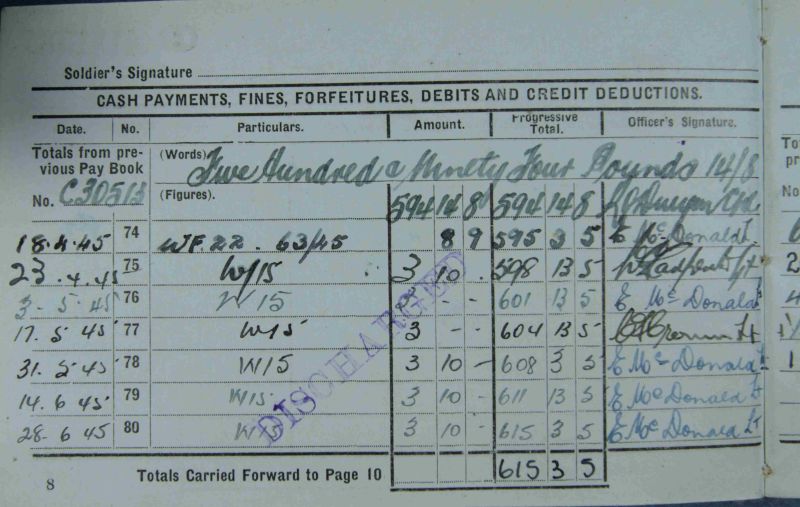 Soldier's Signature
CASH PAYMENTS, FINES, FORFEITURES, DEBITS AND CREDIT DEDUCTIONS.
Date. No. Particulars. Amount. Progressive Total. Officer's Signature.
Totals from pre-
vious Pay Book
No. C30513
(Words) Five Hundred a Ninety Four Pounds 14/8
(Figures). 594 14 8 594 14 8
18.4.45 74 WF.22. 63/45 8 9 595 3 5 E McDonald Lt
23.4.45 75 W/15 3 10 . 598 13 5
3-5.45 76 W15 3 - - 601 13 5 E McDonald Lt
17.5.45 77 W/15 3 - - 604 13 5
31.5.45 78 W/15 3 10 - 608 3 5 E McDonald Lt
14.6.45 79 W/15 3 10 - 611 13 5 E McDonald Lt
28-6 45 80 W15 3 10 - 615 3 5 E McDonald Lt
DISCHARGED
Totals Carried Forward to Page 10 615 3 5
8